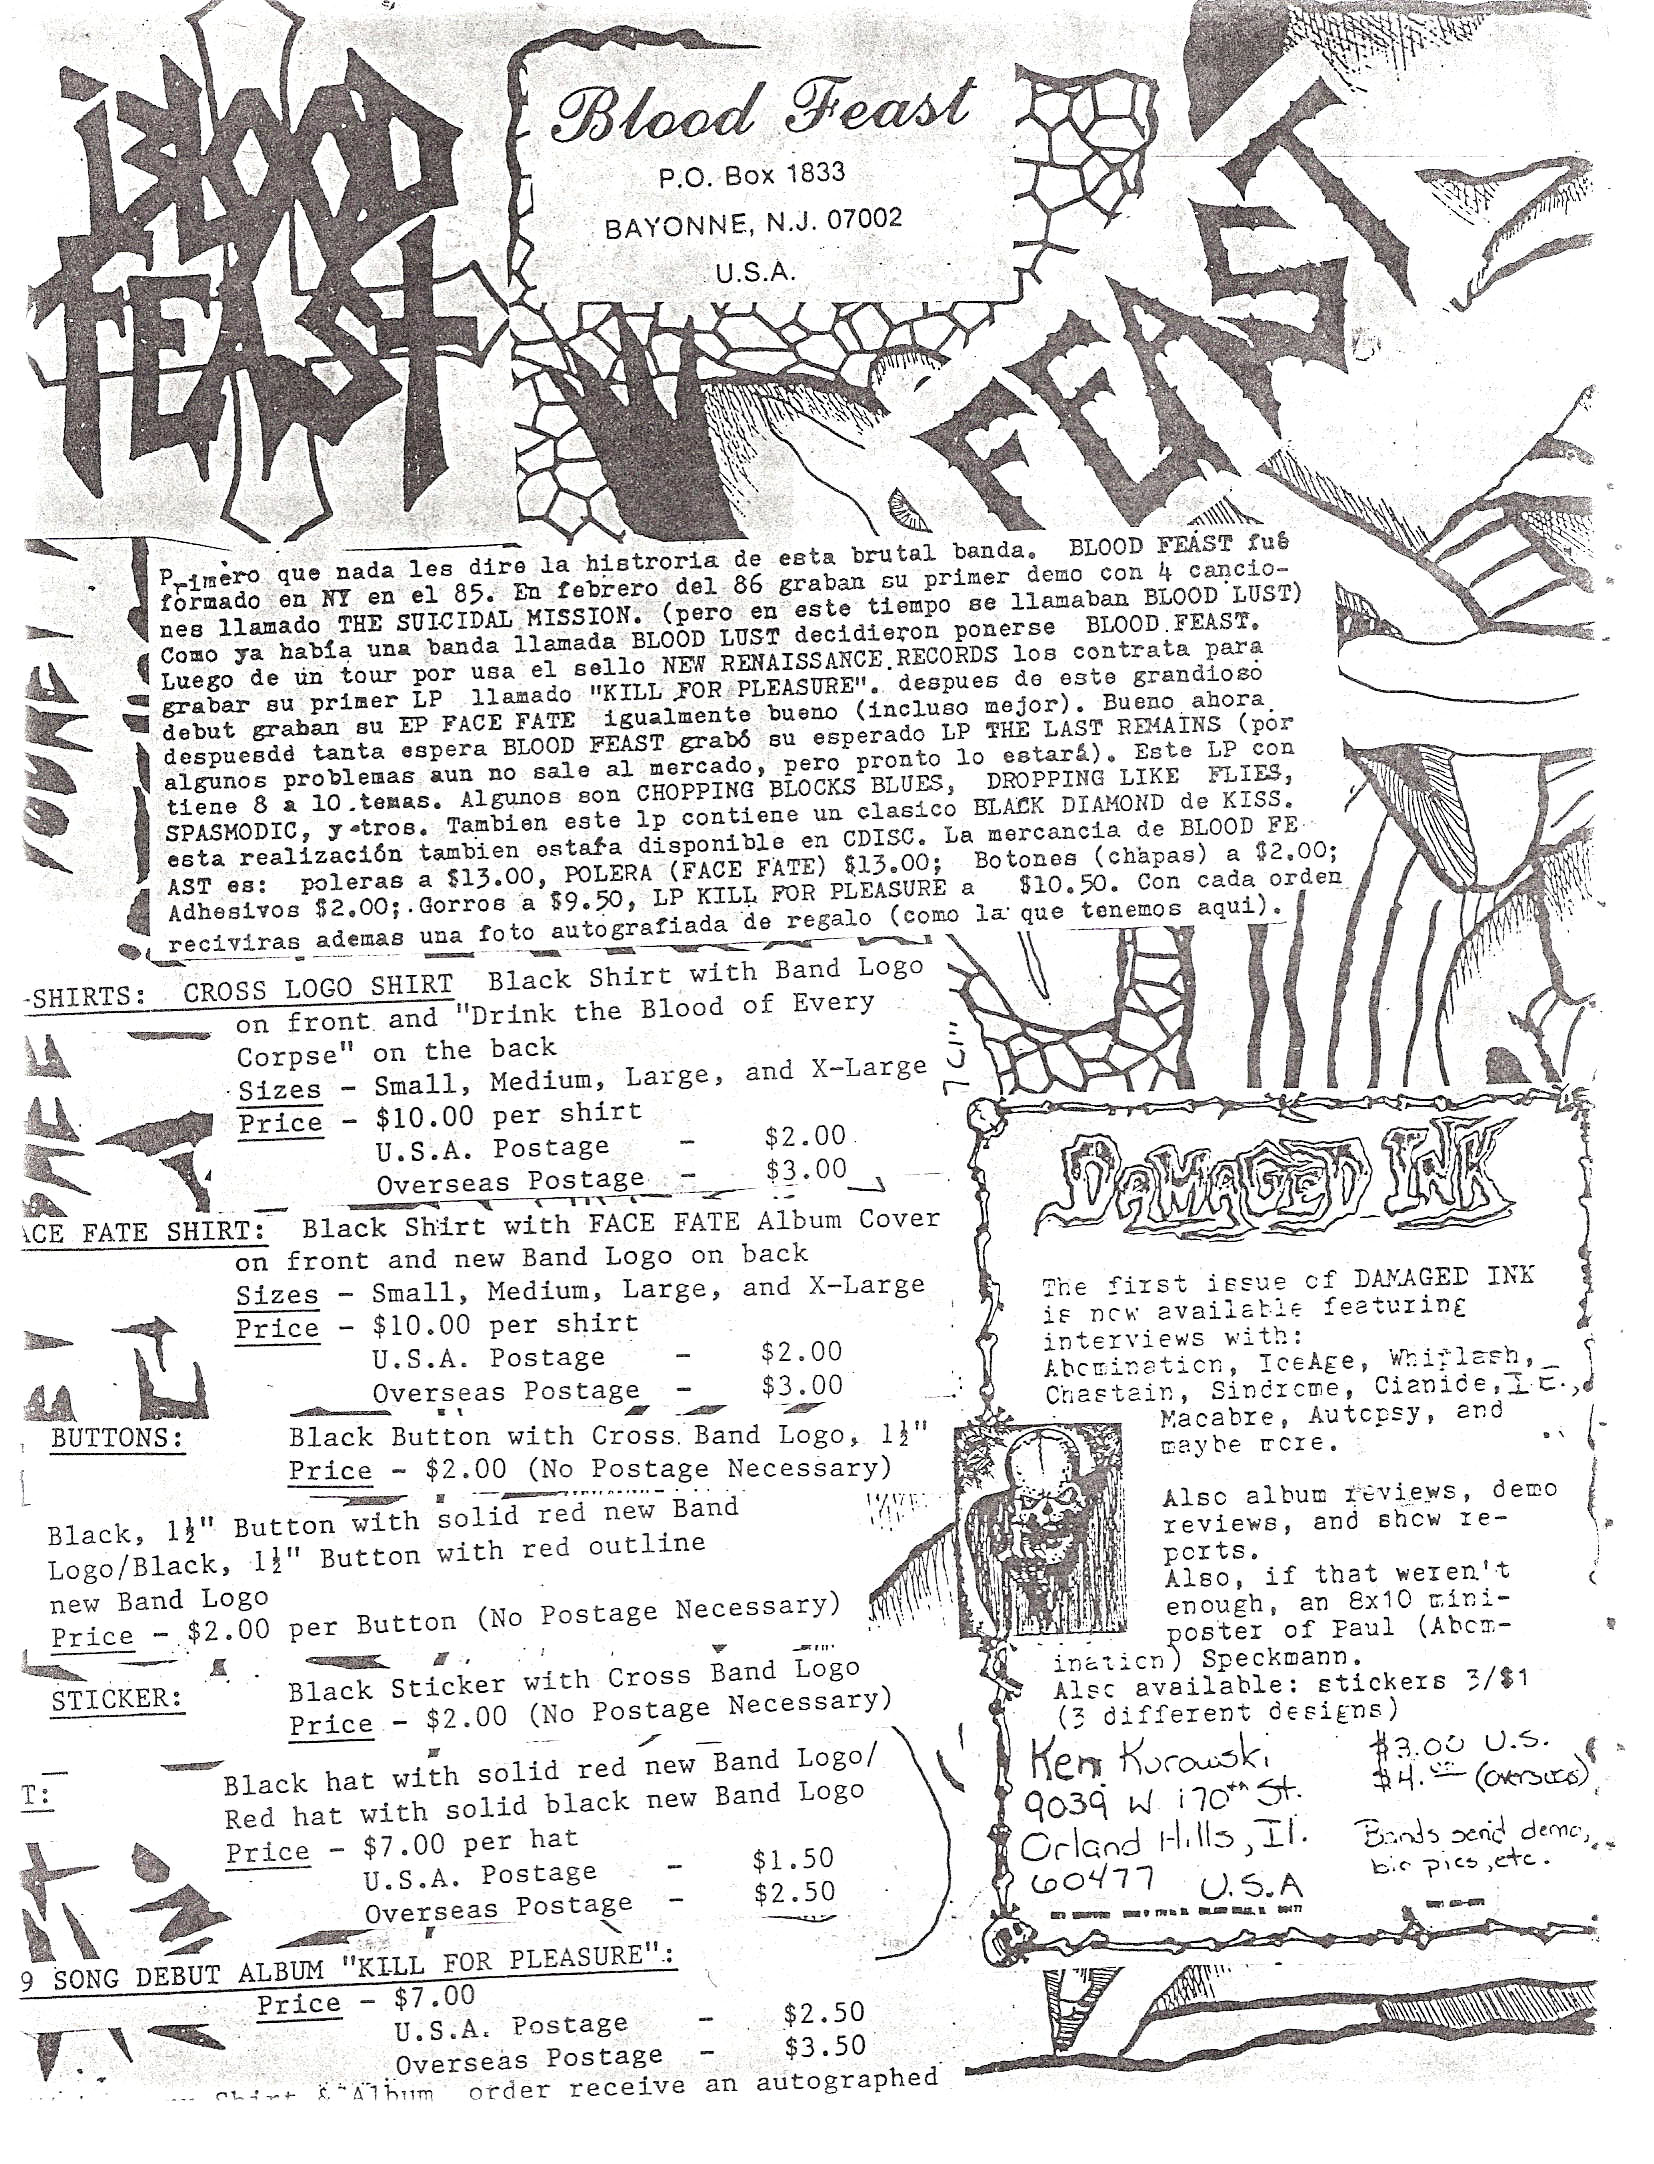 BLOOD
FEAST
Blood Feast
P.O. Box 1833
BAYONNE, N.J. 07002
U.S.A.
FEAST
Primero que nada les dire la histroria de esta brutal banda. BLOOD FEAST fué
formado en NY en el 85. En febrero del 86 graban su primer demo con 4 cancio-
nes llamado THE SUICIDAL MISSION. (pero en este tiempo se llamaban BLOOD LUST)
Como ya había una banda llamada BLOOD LUST decidieron ponerse BLOOD FEAST.
Luego de un tour por usa el sello NEW RENAISSANCE RECORDS los contrata para
grabar su primer LP llamado "KILL FOR PLEASURE". despues de este grandioso
debut graban su EP FACE FATE igualmente bueno (incluso mejor). Bueno ahora
despuesdé tanta espera BLOOD FEAST grabó su esperado LP THE LAST REMAINS (por
algunos problemas aun no sale al mercado, pero pronto lo estará). Este LP con
tiene 8 a 10 temas. Algunos son CHOPPING BLOCKS BLUES, DROPPING LIKE FLIES,
SPASMODIC, y otros. Tambien este lp contiene un clasico BLACK DIAMOND de KISS.
esta realización tambien estara disponible en CDISC. La mercancia de BLOOD FE
AST es: poleras a $13.00, POLERA (FACE FATE) $13.00; Botones (chapas) a $2.00;
Adhesivos $2.00; Gorros a $9.50, LP KILL FOR PLEASURE a $10.50. Con cada orden
reciviras ademas una foto autografiada de regalo (como la que tenemos aqui).
-SHIRTS: CROSS LOGO SHIRT Black Shirt with Band Logo
on front and "Drink the Blood of Every
Corpse" on the back
Sizes - Small, Medium, Large, and X-Large
Price - $10.00 per shirt
U.S.A. Postage - $2.00
Overseas Postage - $3.00
ACE FATE SHIRT: Black Shirt with FACE FATE Album Cover
on front and new Band Logo on back
Sizes - Small, Medium, Large, and X-Large
Price - $10.00 per shirt
U.S.A. Postage - $2.00
Overseas Postage - $3.00
BUTTONS: Black Button with Cross Band Logo, 1½"
Price - $2.00 (No Postage Necessary)
Black, 1½" Button with solid red new Band
Logo/Black, 1½" Button with red outline
new Band Logo
Price - $2.00 per Button (No Postage Necessary)
STICKER: Black Sticker with Cross Band Logo
Price - $2.00 (No Postage Necessary)
T: Black hat with solid red new Band Logo/
Red hat with solid black new Band Logo
Price - $7.00 per hat
U.S.A. Postage - $1.50
Overseas Postage - $2.50
9 SONG DEBUT ALBUM "KILL FOR PLEASURE":
Price - $7.00
U.S.A. Postage - $2.50
Overseas Postage - $3.50
Shirt & Album order receive an autographed
DAMAGED INK
The first issue of DAMAGED INK
is now available featuring
interviews with:
Abomination, IceAge, Whiplash,
Chastain, Sindrome, Cianide,
Macabre, Autopsy, and
maybe more.
Also album reviews, demo
reviews, and show re-
ports.
Also, if that weren't
enough, an 8x10 mini-
poster of Paul (Abom-
ination) Speckmann.
Also available: stickers 3/$1
(3 different designs)
Ken Kurowski
9039 W 170th St.
Orland Hills, Il.
60477 U.S.A
$3.00 U.S.
$4.00 (overseas)
Bands send demo,
bio pics, etc.